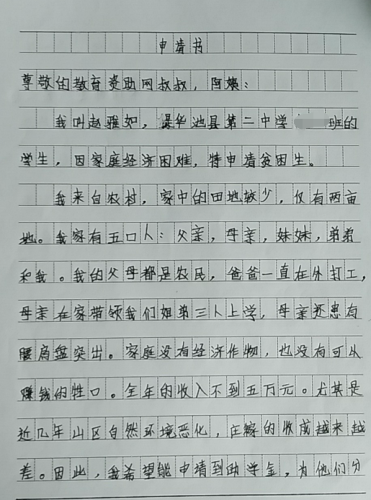 申请书
尊敬的教育资助网叔叔，阿姨：
我叫赵雅如，是华池县第二中学 班的
学生，因家庭经济困难，特申请贫困生。
我来自农村，家中的田地较少，仅有两亩
地。我家有五口人：父亲，母亲，妹妹，弟弟
和我。我的父母都是农民，爸爸一直在外打工，
母亲在家带领我们姐弟三人上学，母亲还患有
腰肩盘突出。家庭没有经济作物，也没有可以
赚钱的牲口。全年的收入不到五万元。尤其是
近几年山区自然环境恶化，庄稼的收成越来越
差。因此，我希望能申请到助学金，为他们分